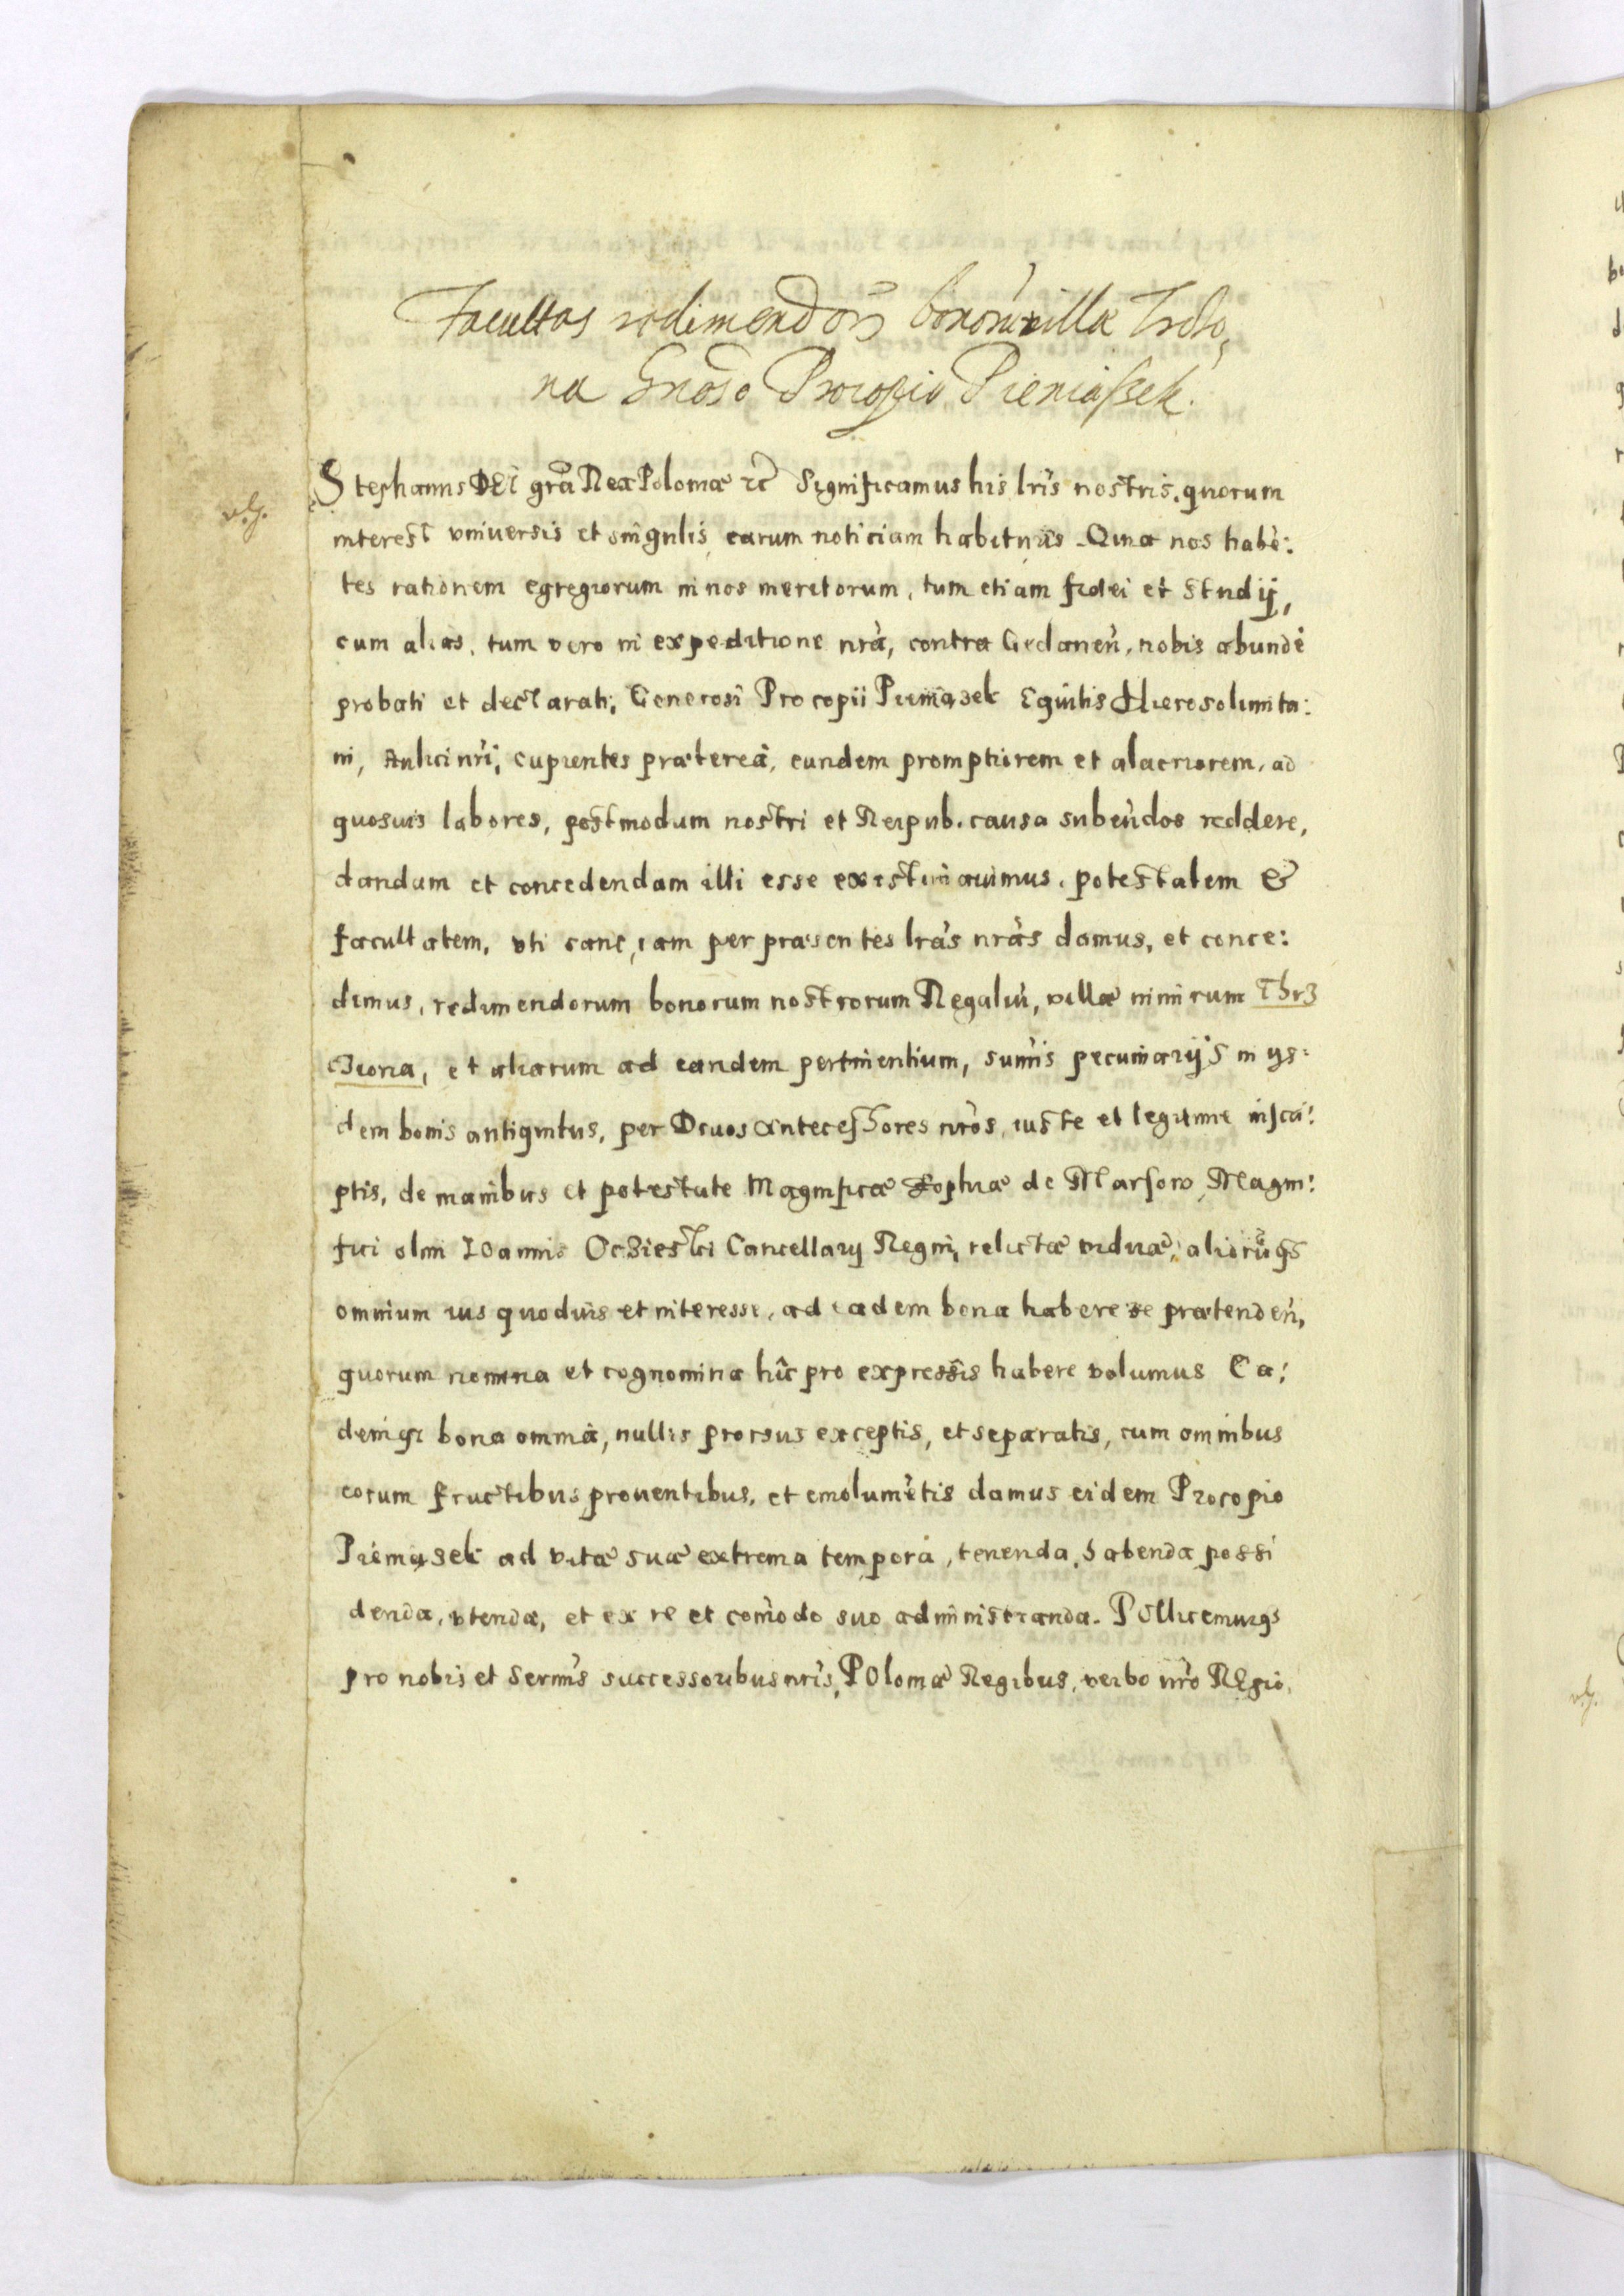 Facultas redimendor bonorū villæ Trdlo,
na Gnoso Procopio Pieniassek.
Stephanus DEI grā Rex Poloniæ ꝛc̄ Significamus his lr̄is nostris, quorum
interest vniuersis et singulis earum noticiam habituris. Quia nos habē:
tes rationem egregiorum in nos meritorum, tum etiam fidei et studij,
cum alias, tum vero in expeditione nrā, contra Gedanen̄, nobis abundè
probati et declarati, Generosi Procopii Pieniązek Equitis Hierosolimita:
ni, Aulici nrī, cupientes prætereà, eundem promptiorem et alacriorem, ad
quosuis labores, postmodum nostri et Reipub. causa subeūdos reddere,
dandam et concedendam illi esse existimauimus, potestatem &
facultatem, vti sane, iam per præsentes lrās nrās damus, et conce:
dimus, redimendorum bonorum nostrorum Regaliū, villæ nimirum Thrz
cziona, et aliarum ad eandem pertinentium, summis pecuniarijs in ys:
dem bonis antiquitus, per Diuos antecessores nrōs, iuste et legitime inscri:
ptis, de manibus et potestate Magnificæ Sophiæ de Marsow, Magni:
fici olim IOannis Oczieski Cancellarij Regni, relictæ viduæ, aliorūqꝫ
omnium ius quoduis et interesse, ad eadem bona habere se prætenden̄,
quorum nomina et cognomina hîc pro expressis habere volumus Ea:
demqꝫ bona omnia, nullis prorsus exceptis, et separatis, cum omnibus
eorum fructibus prouentibus, et emolumētis damus eidem Procopio
Pieniązek ad vitæ suæ extrema tempora, tenenda, habenda possi
denda, vtenda, et ex re et comōdo suo administranda. POllicemurqꝫ
pro nobis et Sermīs successoribus nrīs, POloniæ Regibus, verbo nrō REgio,